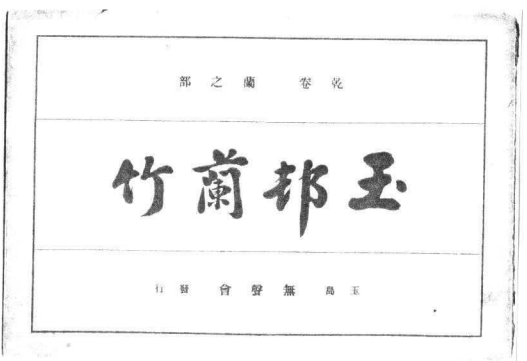 乾卷 蘭之部
玉邨蘭竹
玉島 無聲會 發行